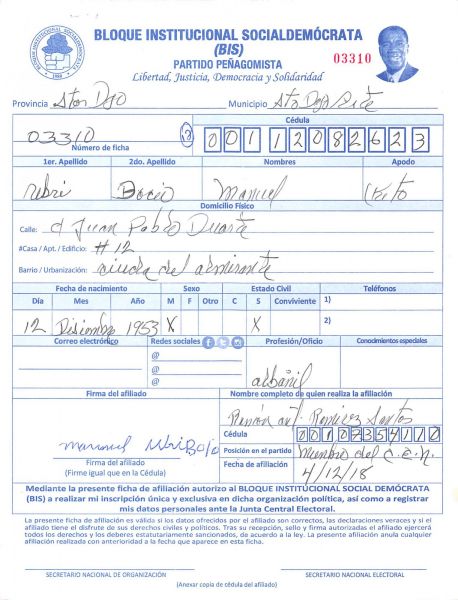 BLOQUE INSTITUCIONAL SOCIALDEMÓCRATA
(BIS)
PARTIDO PEÑAGOMISTA
Libertad, Justicia, Democracia y Solidaridad
03310
BLOQUE INSTITUCIONAL SOCIALDEMOCRATA
BIS
Provincia Sto Dgo Municipio Sto Dgo Este
03310
Número de ficha
Cédula
001 1208262 3
1er. Apellido 2do. Apellido Nombres Apodo
Ubri Manuel
Domicilio Físico
Calle: C/ Juan Pablo Duarte
#Casa / Apt. / Edificio: #12
Barrio / Urbanización: del almirante
Fecha de nacimiento Sexo Estado Civil Teléfonos
Día Mes Año M F Otro C S Conviviente 1)
12 Disiembre 1953 X X 2)
Correo electrónico Redes sociales Profesión/Oficio Conocimientos especiales
@
@
@
albañil
Firma del afiliado Nombre completo de quien realiza la afiliación
Ramón ant. Ramirez Santos
Cédula 001 0235411 0
Manuel Ubri
Posición en el partido Miembro del C.E.N.
Firma del afiliado
(Firme igual que en la Cédula)
Fecha de afiliación 4/12/18
Mediante la presente ficha de afiliación autorizo al BLOQUE INSTITUCIONAL SOCIAL DEMÓCRATA
(BIS) a realizar mi inscripción única y exclusiva en dicha organización política, así como a registrar
mis datos personales ante la Junta Central Electoral.
La presente ficha de afiliación es válida si los datos ofrecidos por el afiliado son correctos, las declaraciones veraces y si el
afiliado tiene el disfrute de sus derechos civiles y políticos. Tras su recepción, sello y firma autorizadas el afiliado ejercerá
todos los derechos y los deberes estatutariamente sancionados, de acuerdo a la ley. La presente afiliación anula cualquier
afiliación realizada con anterioridad a la fecha que aparece en esta ficha.
SECRETARIO NACIONAL DE ORGANIZACIÓN SECRETARIO NACIONAL ELECTORAL
(Anexar copia de cédula del afiliado)